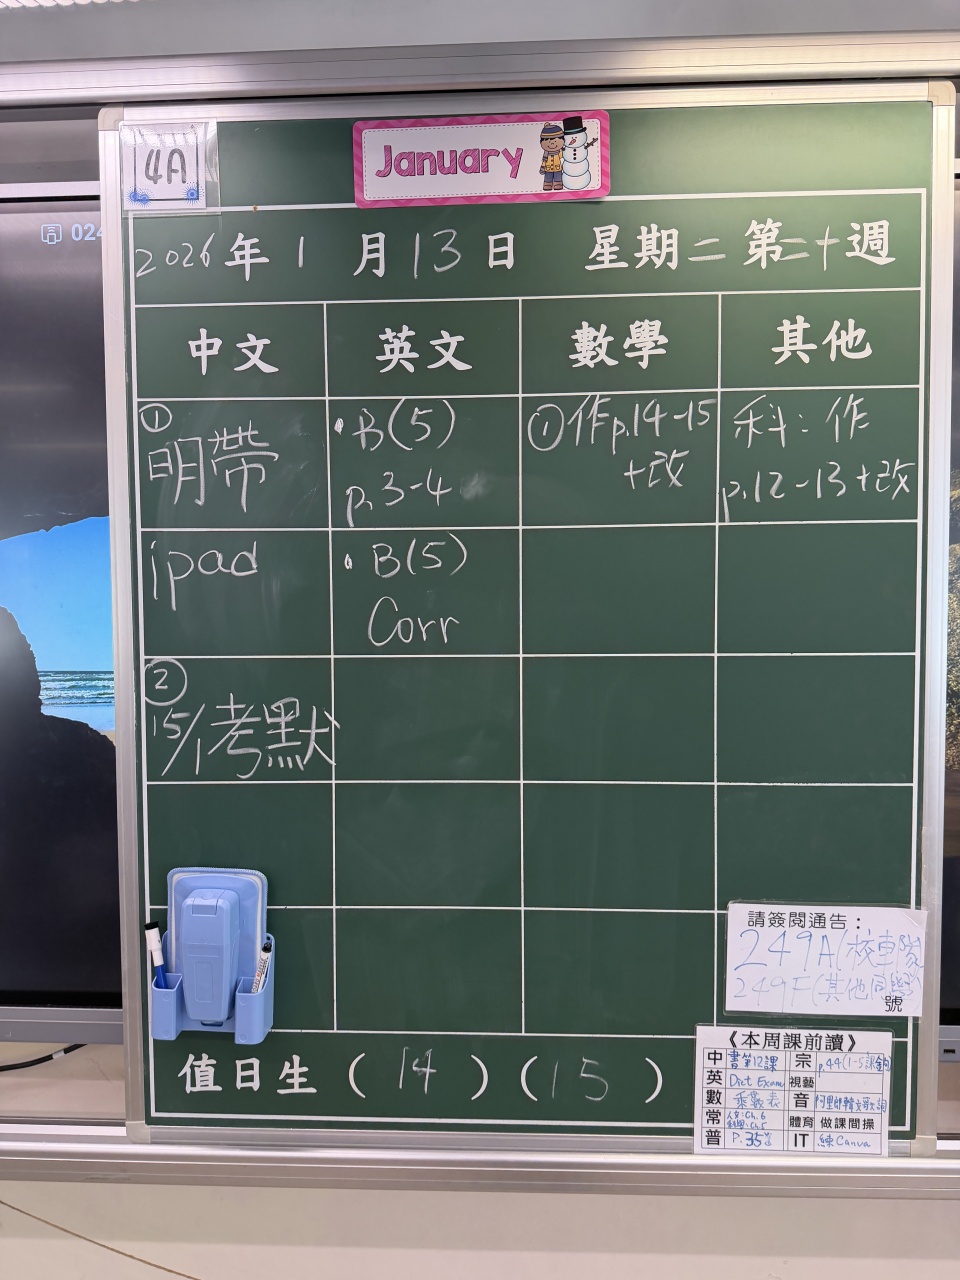 4A
January
024
2026年1月13日 星期二 第二十週
中文 英文 數學 其他
①
明帶
ipad
②
15/1考默
•B(5)
p.3-4
•B(5)
Corr
①作p.14-15
+改
科：作
p.12-13+改
請簽閱通告：
249A(校車隊)
249F(其他同學)
號
值日生（14）（15）
《本周課前讀》
中 書第12課 宗 p.44(1-5課
英 Dict Exam 視藝
數 乘數表 音
常 人文:Ch.6 體育 做課間操
科學:Ch.5
普 P.35 IT 練Canva